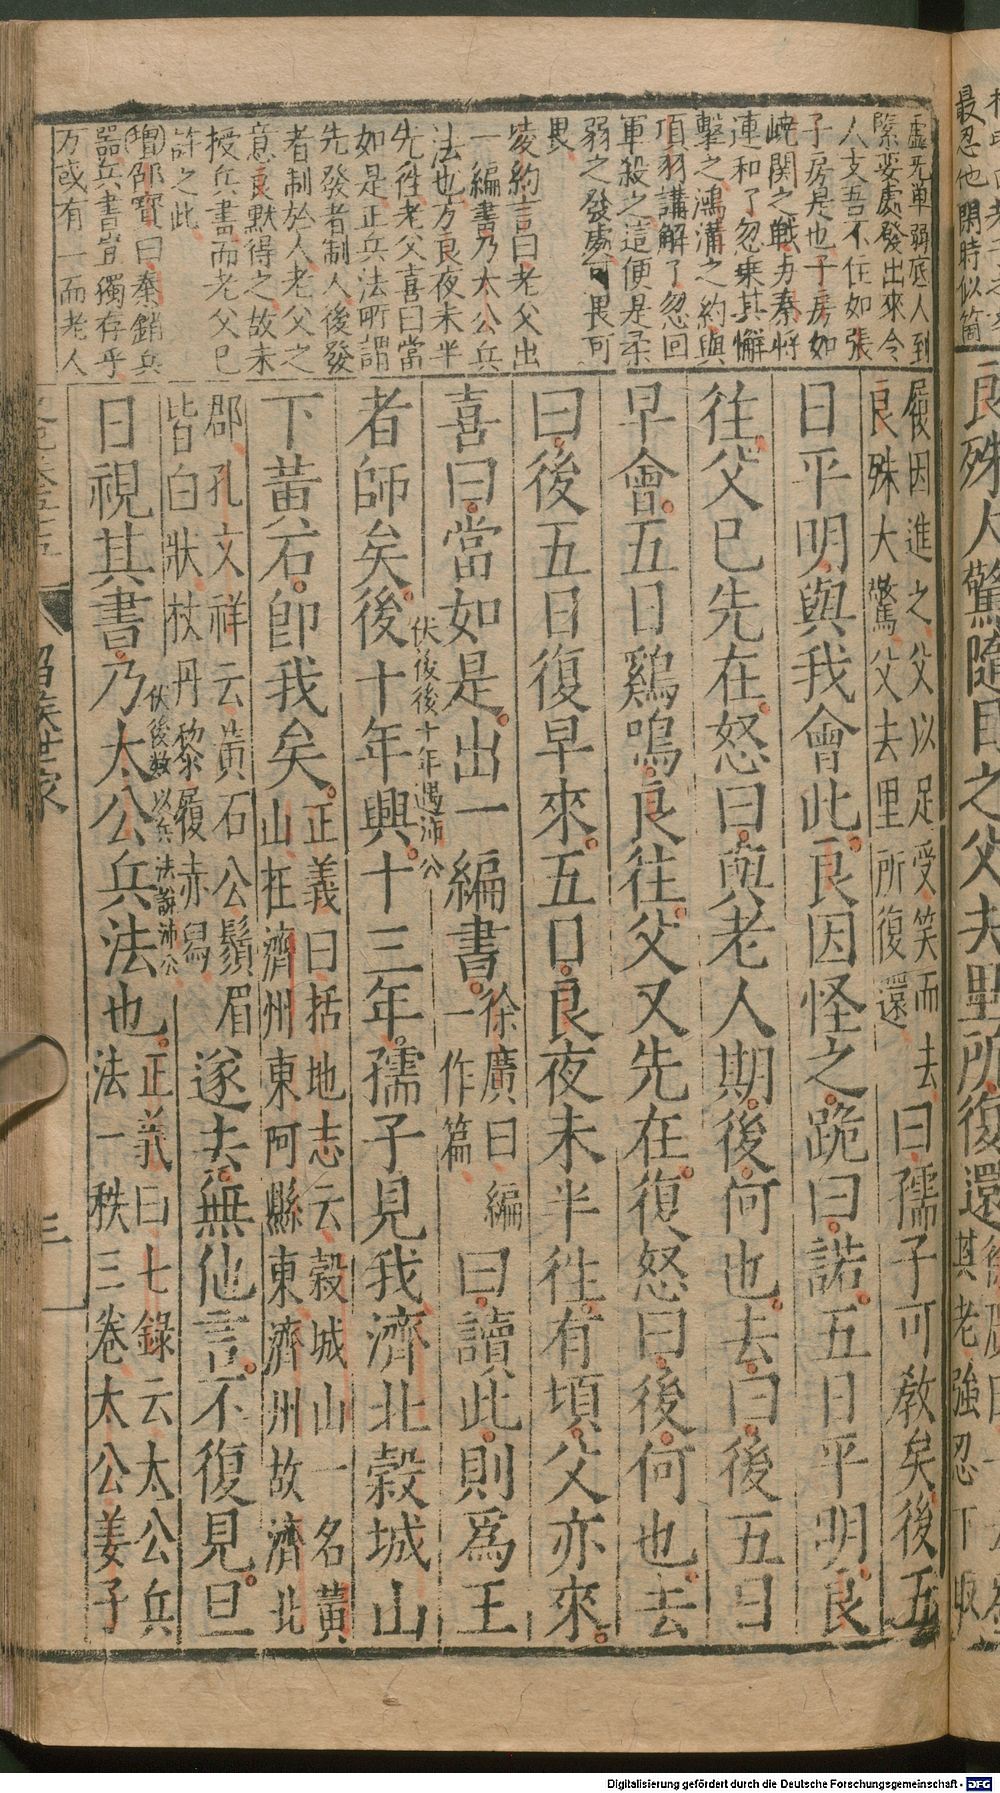 虛无單弱底人到
緊要處發出來令
人支吾不住如張
子房是也子房如
嶢関之戰与秦將
連和了忽乗其懈
擊之鴻溝之約與
項羽講解了忽回
軍殺之這便是柔
弱之發處可畏可
畏
凌約言曰老父出
一編書乃太公兵
法也方良夜未半
先徃老父喜曰當
如是正兵法所謂
先發者制人後發
者制於人老父之
意良默得之故未
授兵書而老父已
許之此
增邵寳曰秦銷兵
噐兵書豈獨存乎
万或有一而老人
履因進之父以足受笑而去
良殊大驚父去里所復還
曰孺子可敎矣後五
日平明與我會此良因怪之跪曰諾五日平明良
往父已先在怒曰與老人期後何也去曰後五日
早會五日鷄鳴良往父又先在復怒曰後何也去
曰後五日復早來五日良夜未半徃有頃父亦來
喜曰當如是出一編書
徐廣曰編
一作篇
曰讀此則爲王
者師矣後十年興十三年孺子見我濟北穀城山
伏後後十年遇沛公
下黃石即我矣
正義曰括地志云穀城山一名黃
山在濟州東阿縣東濟州故濟北
郡孔文祥云黃石公鬚眉
皆白狀杖丹黎履赤舄
遂去無他言不復見旦
伏後數以兵法說沛公
日視其書乃太公兵法也
正義曰七錄云太公兵
法一秩三卷太公姜子
三
良殊大驚隨目之父去里所復還
最忍他閑時似箇
其老強忍下取
Digitalisierung gefördert durch die Deutsche Forschungsgemeinschaft - DFG